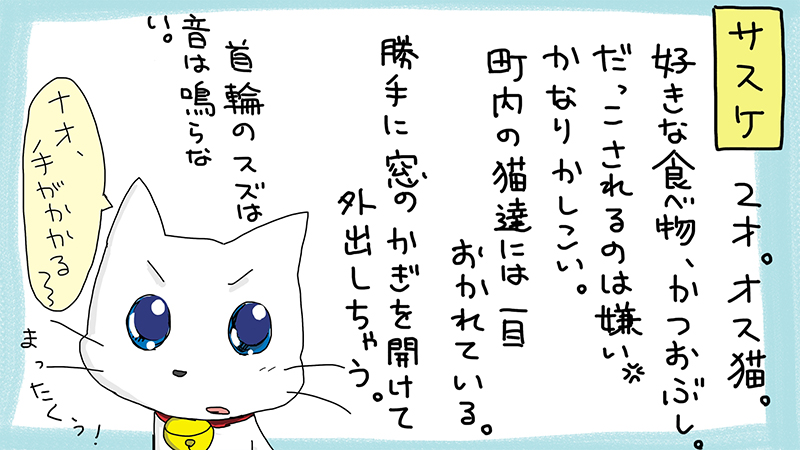 サスケ
2才。オス猫。
好きな食べ物、かつおぶし。
だっこされるのは嫌い
かなりかしこい。
町内の猫達には一目
おかれている。
勝手に窓のかぎを開けて
外出しちゃう。
首輪のスズは
音は鳴らな
い。
ナオ、
手がかかる〜
まったくぅ!